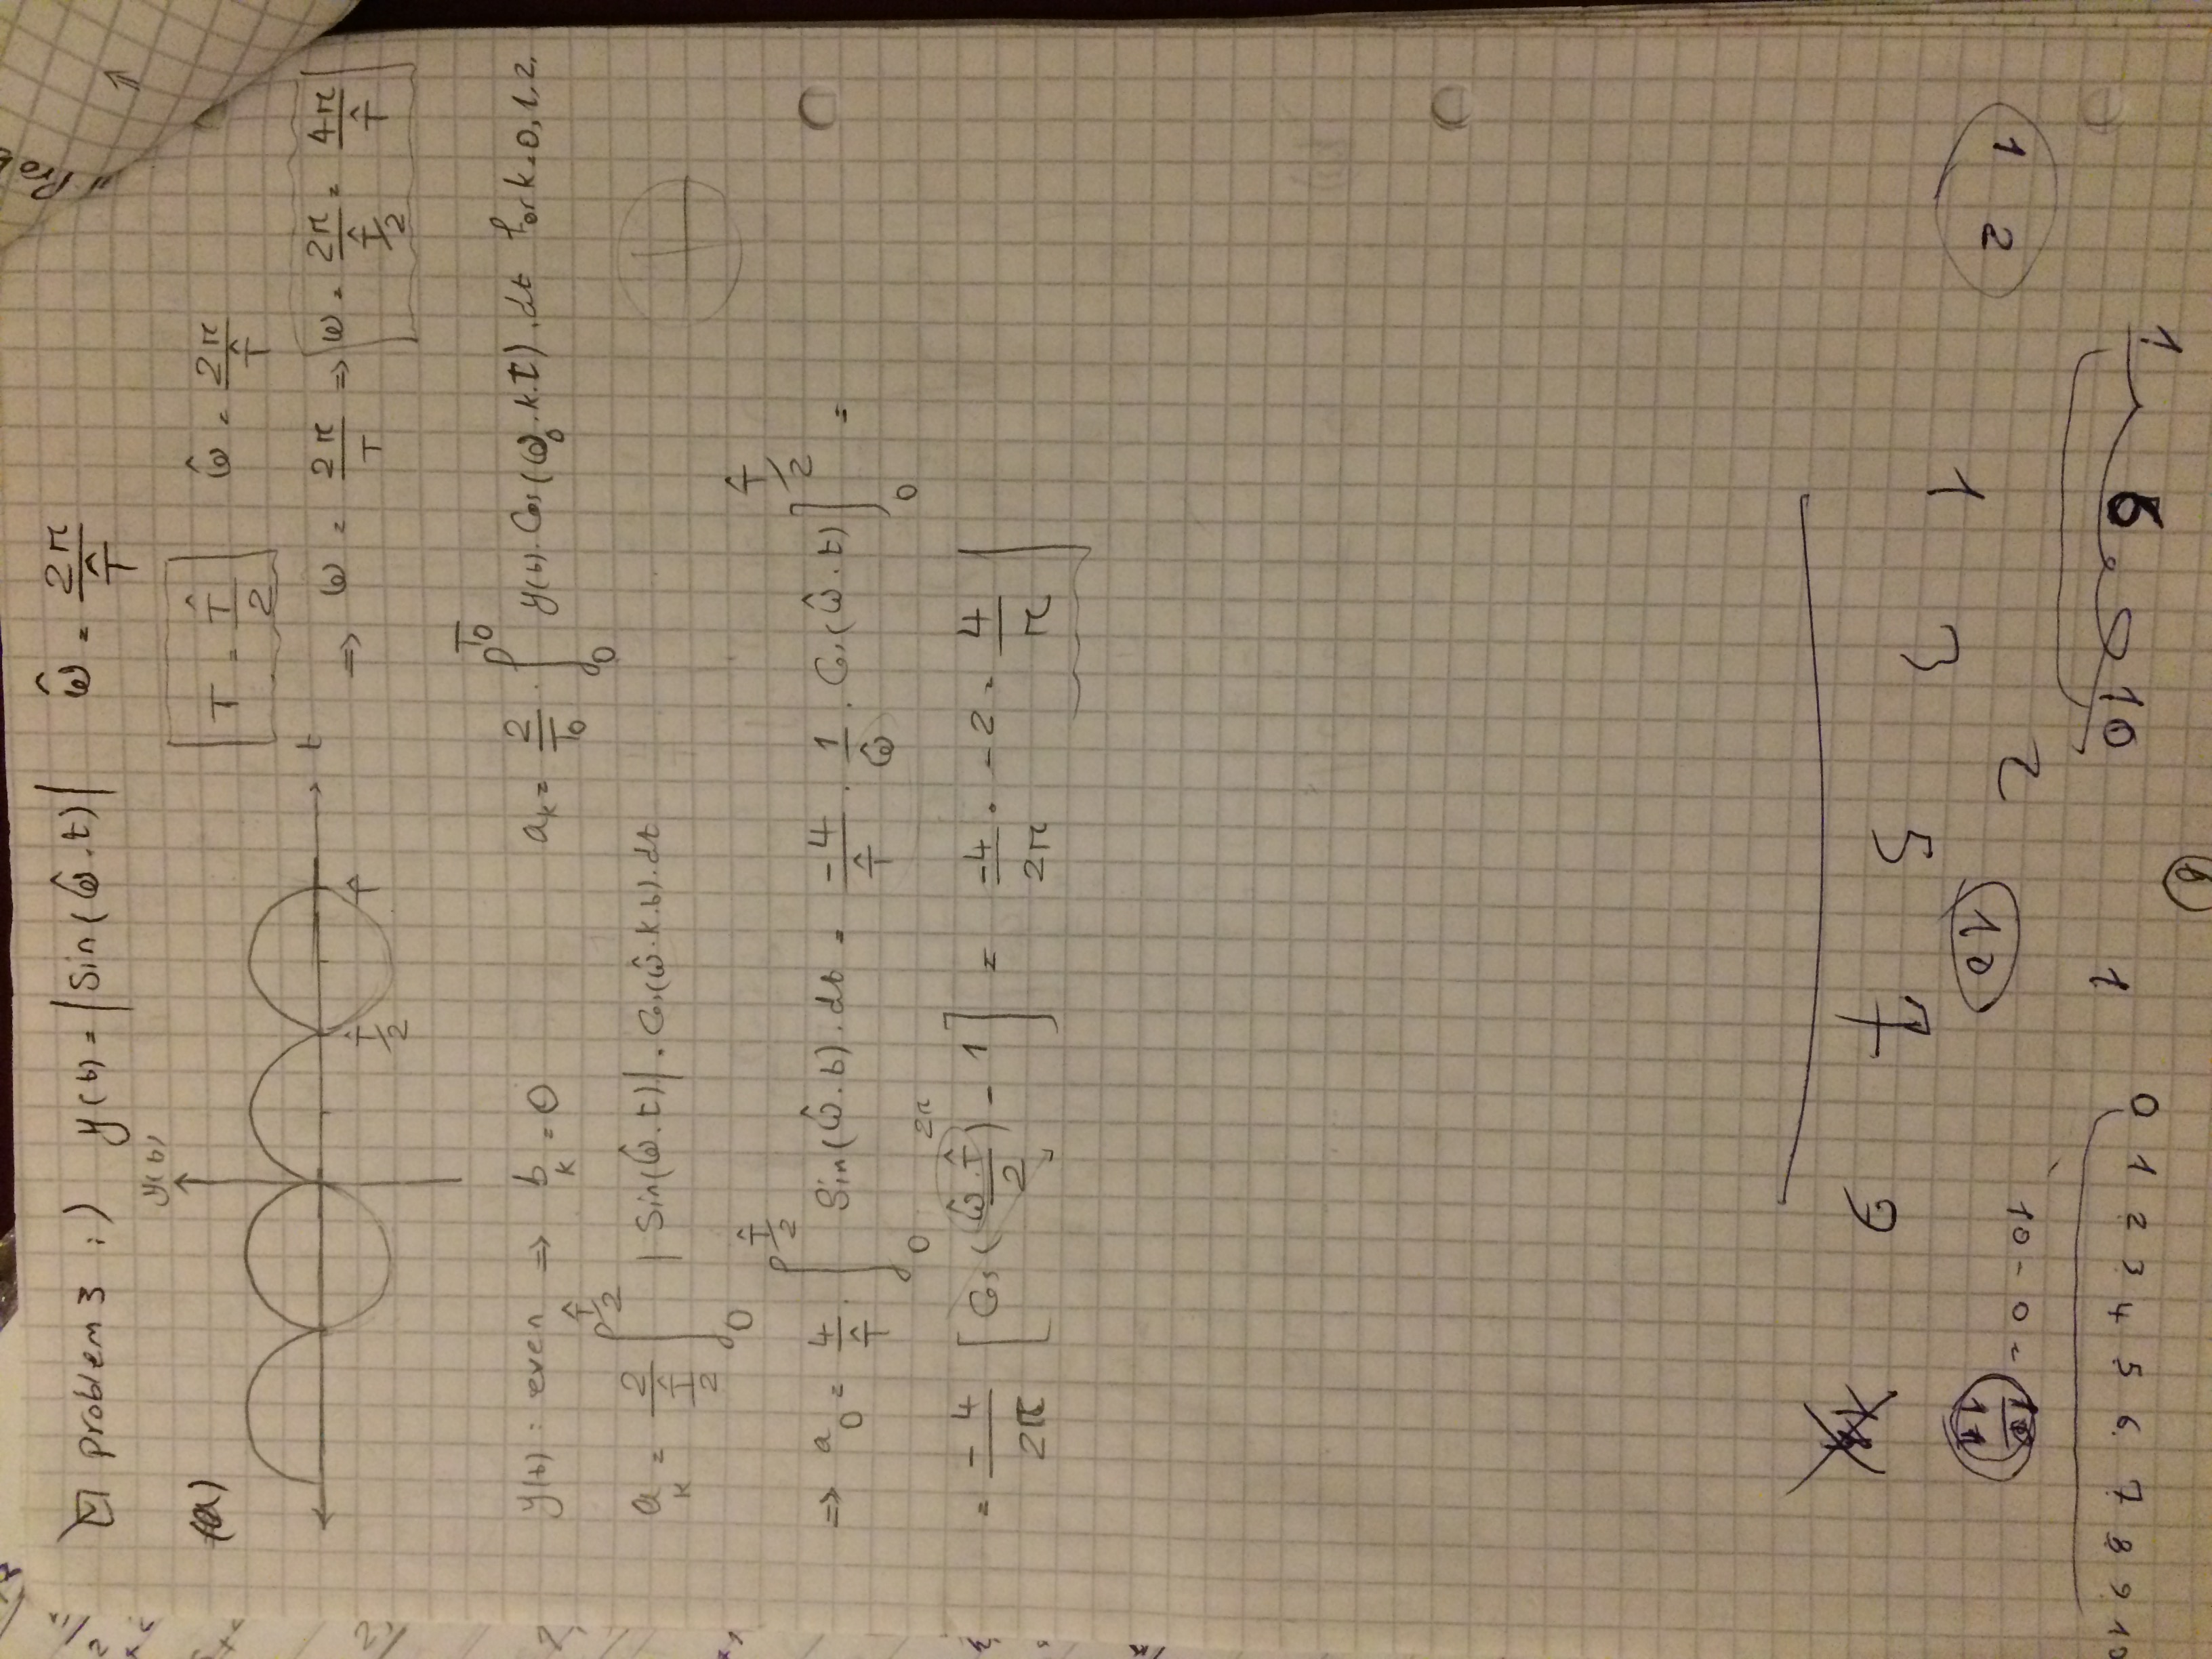 problem 3 :) y(t) = |Sin(ω̂.t)| ω̂ = 2π/T̂
(a) y(t) T = T̂/2 ω̂ = 2π/T̂
t T̂/2 T̂ ⇒ ω = 2π/T ⇒ ω = 2π/(T̂/2) = 4π/T̂
y(t) : even ⇒ b_k = 0 a_k = 2/T0 . ∫_0^T0 y(t).Cos(ω_0.k.t).dt for k=0,1,2.
a_k = 2/(T̂/2) ∫_0^(T̂/2) |Sin(ω̂.t)|.Cos(ω̂.k.t).dt
⇒ a_0 = 4/T̂ . ∫_0^(T̂/2) Sin(ω̂.t).dt = -4/T̂ . 1/ω̂ . Cos(ω̂.t)]_0^(T̂/2) =
2π
= -4/2π [Cos(ω̂.T̂/2) - 1] = -4/2π . -2 = 4/π
1 10
0 1 2 3 4 5 6 7 8 9 10
1 2 2 10 10 - 0 =
1 3 5 7 9